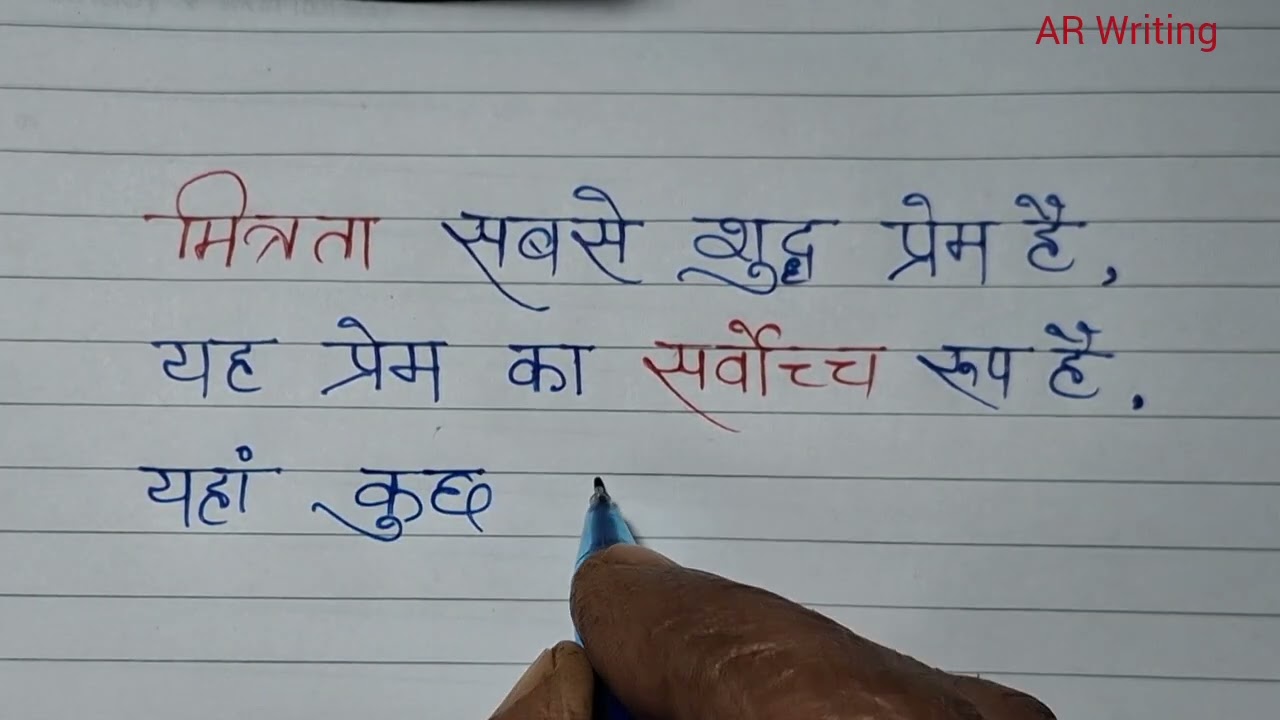 AR Writing
मित्रता सबसे शुद्ध प्रेम है,
यह प्रेम का सर्वोच्च रूप है.
यहां कुछ